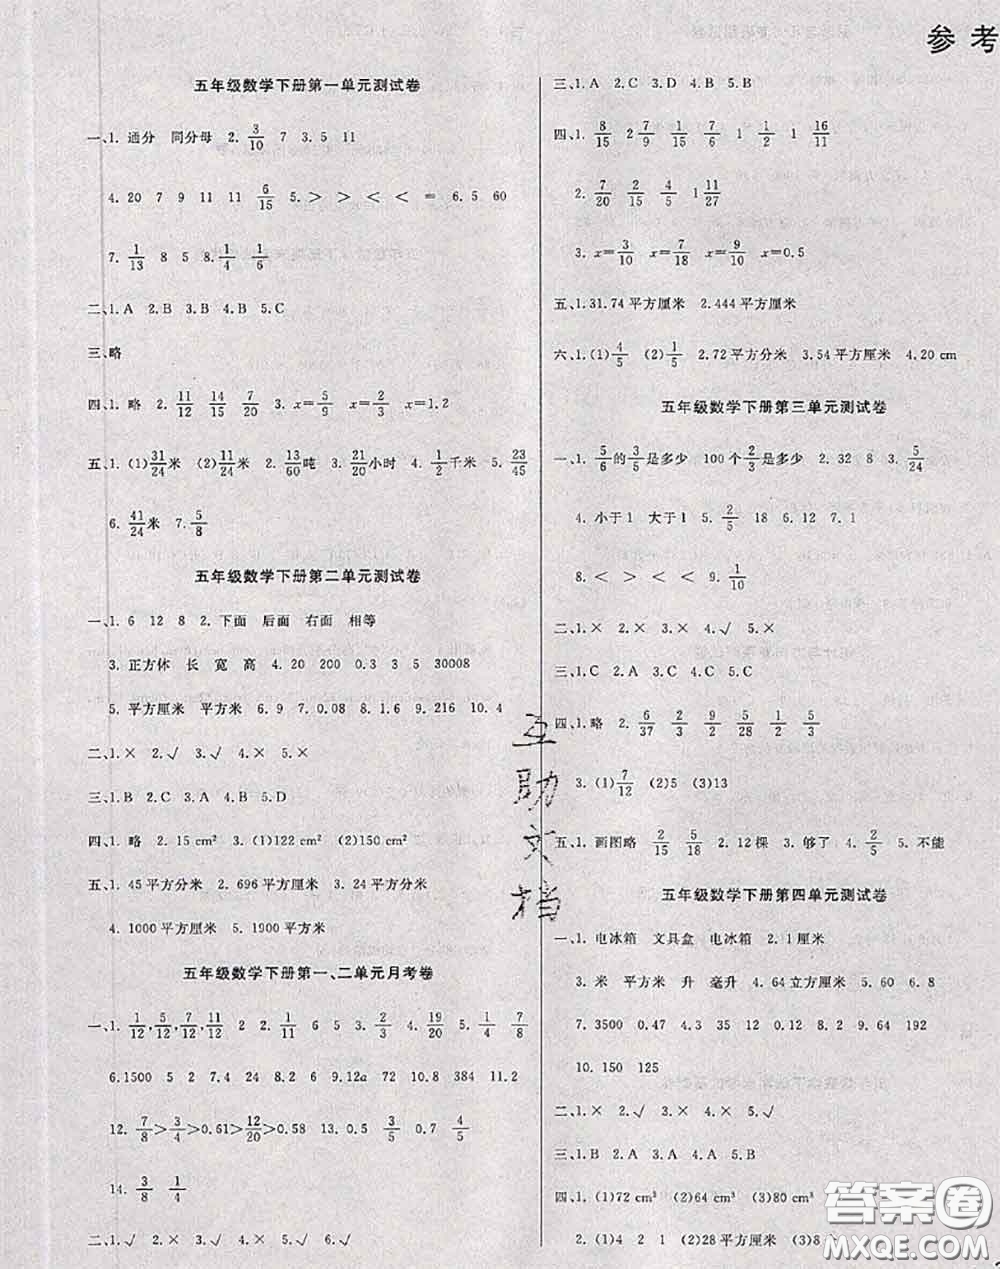 参 考
五年级数学下册第一单元测试卷
一、1. 通分 同分母 2. 3/10 7 3. 5 11
4. 20 7 9 11 11 6/15 5. > > < < = 6. 5 60
7. 1/13 8 5 8. 1/4 1/6
二、1. A 2. B 3. B 4. B 5. C
三、略
四、1. 略 2. 11/12 14/15 7/20 3. x=5/9 x=2/3 x=1.2
五、1. (1)31/24米 (2)11/24米 2. 13/60吨 3. 21/20小时 4. 1/2千米 5. 23/45
6. 41/24米 7. 5/8
五年级数学下册第二单元测试卷
一、1. 6 12 8 2. 下面 后面 右面 相等
3. 正方体 长 宽 高 4. 20 200 0.3 3 5 30008
5. 平方厘米 平方米 6. 9 7. 0.08 8. 1.6 9. 216 10. 4
二、1. × 2. √ 3. √ 4. × 5. ×
三、1. B 2. C 3. A 4. B 5. D
四、1. 略 2. 15 cm² 3. (1)122 cm² (2)138 cm²
五、1. 45平方分米 2. 696平方厘米 3. 24平方分米
4. 1000平方厘米 5. 1900平方米
五年级数学下册第一、二单元月考卷
一、1. 1/12, 5/12, 7/12, 11/12 2 2. 1/11 6 5 3. 2/3 4. 19/20 5. 1/4 7/8
6. 1500 5 2 7. 24 8. 2 6 9. 12a 72 10. 8 384 11. 2
12. 7/8>3/4>0.61>12/20>0.58 13. 0.5 3/5 0.7 4/5
14. 3/8 1/4
二、1. √ 2. × 3. × 4. × 5. √ 6. √
三、1. A 2. C 3. D 4. B 5. B
四、1. 8/15 2 7/9 1/15 7/6 1 1/2 16/11
2. 7/20 2/15 1 11/27
3. x=3/10 x=7/18 x=9/10 x=0.5
五、1. 31.74平方厘米 2. 444平方厘米
六、1. (1)4/5 (2)1/5 2. 72平方分米 3. 54平方厘米 4. 20 cm
五年级数学下册第三单元测试卷
一、1. 5/6的3/5是多少 100个2/3是多少 2. 32 8 3. 5/24
4. 小于1 大于1 5. 2/5 18 6. 12 7. 1
8. < > < < 9. 1/10
二、1. × 2. × 3. × 4. √ 5. ×
三、1. C 2. A 3. C 4. C 5. C
四、1. 略 2. 6/37 2/3 9/2 5/28 1/2 5/3
3. (1)7/12 (2)5 (3)13
五、1. 画图略 2/15 5/18 2. 12棵 3. 够了 4. 2/5 5. 不能
五年级数学下册第四单元测试卷
一、1. 电冰箱 文具盒 电冰箱 2. 1厘米
3. 米 平方米 升 毫升 4. 64立方厘米 5. 60 6. 8
7. 3500 0.47 4.3 35 12 0.12 8. 2 9. 64 192
10. 150 125
二、1. × 2. √ 3. × 4. × 5. √
三、1. B 2. A 3. A 4. A 5. B
四、1. (1)72 cm³ (2)64 cm³ (3)80 cm³
2. (1)4 2 1 (2)28平方厘米 (3)8
互助文档
答案卷
MXQE.COM